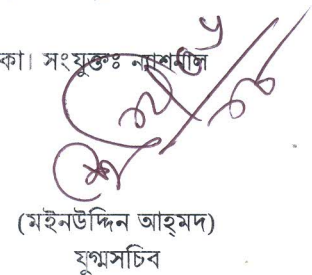 কা। সংযুক্তঃ ন্যাশনাল
(মইনউদ্দিন আহ্‌মদ)
যুগ্মসচিব